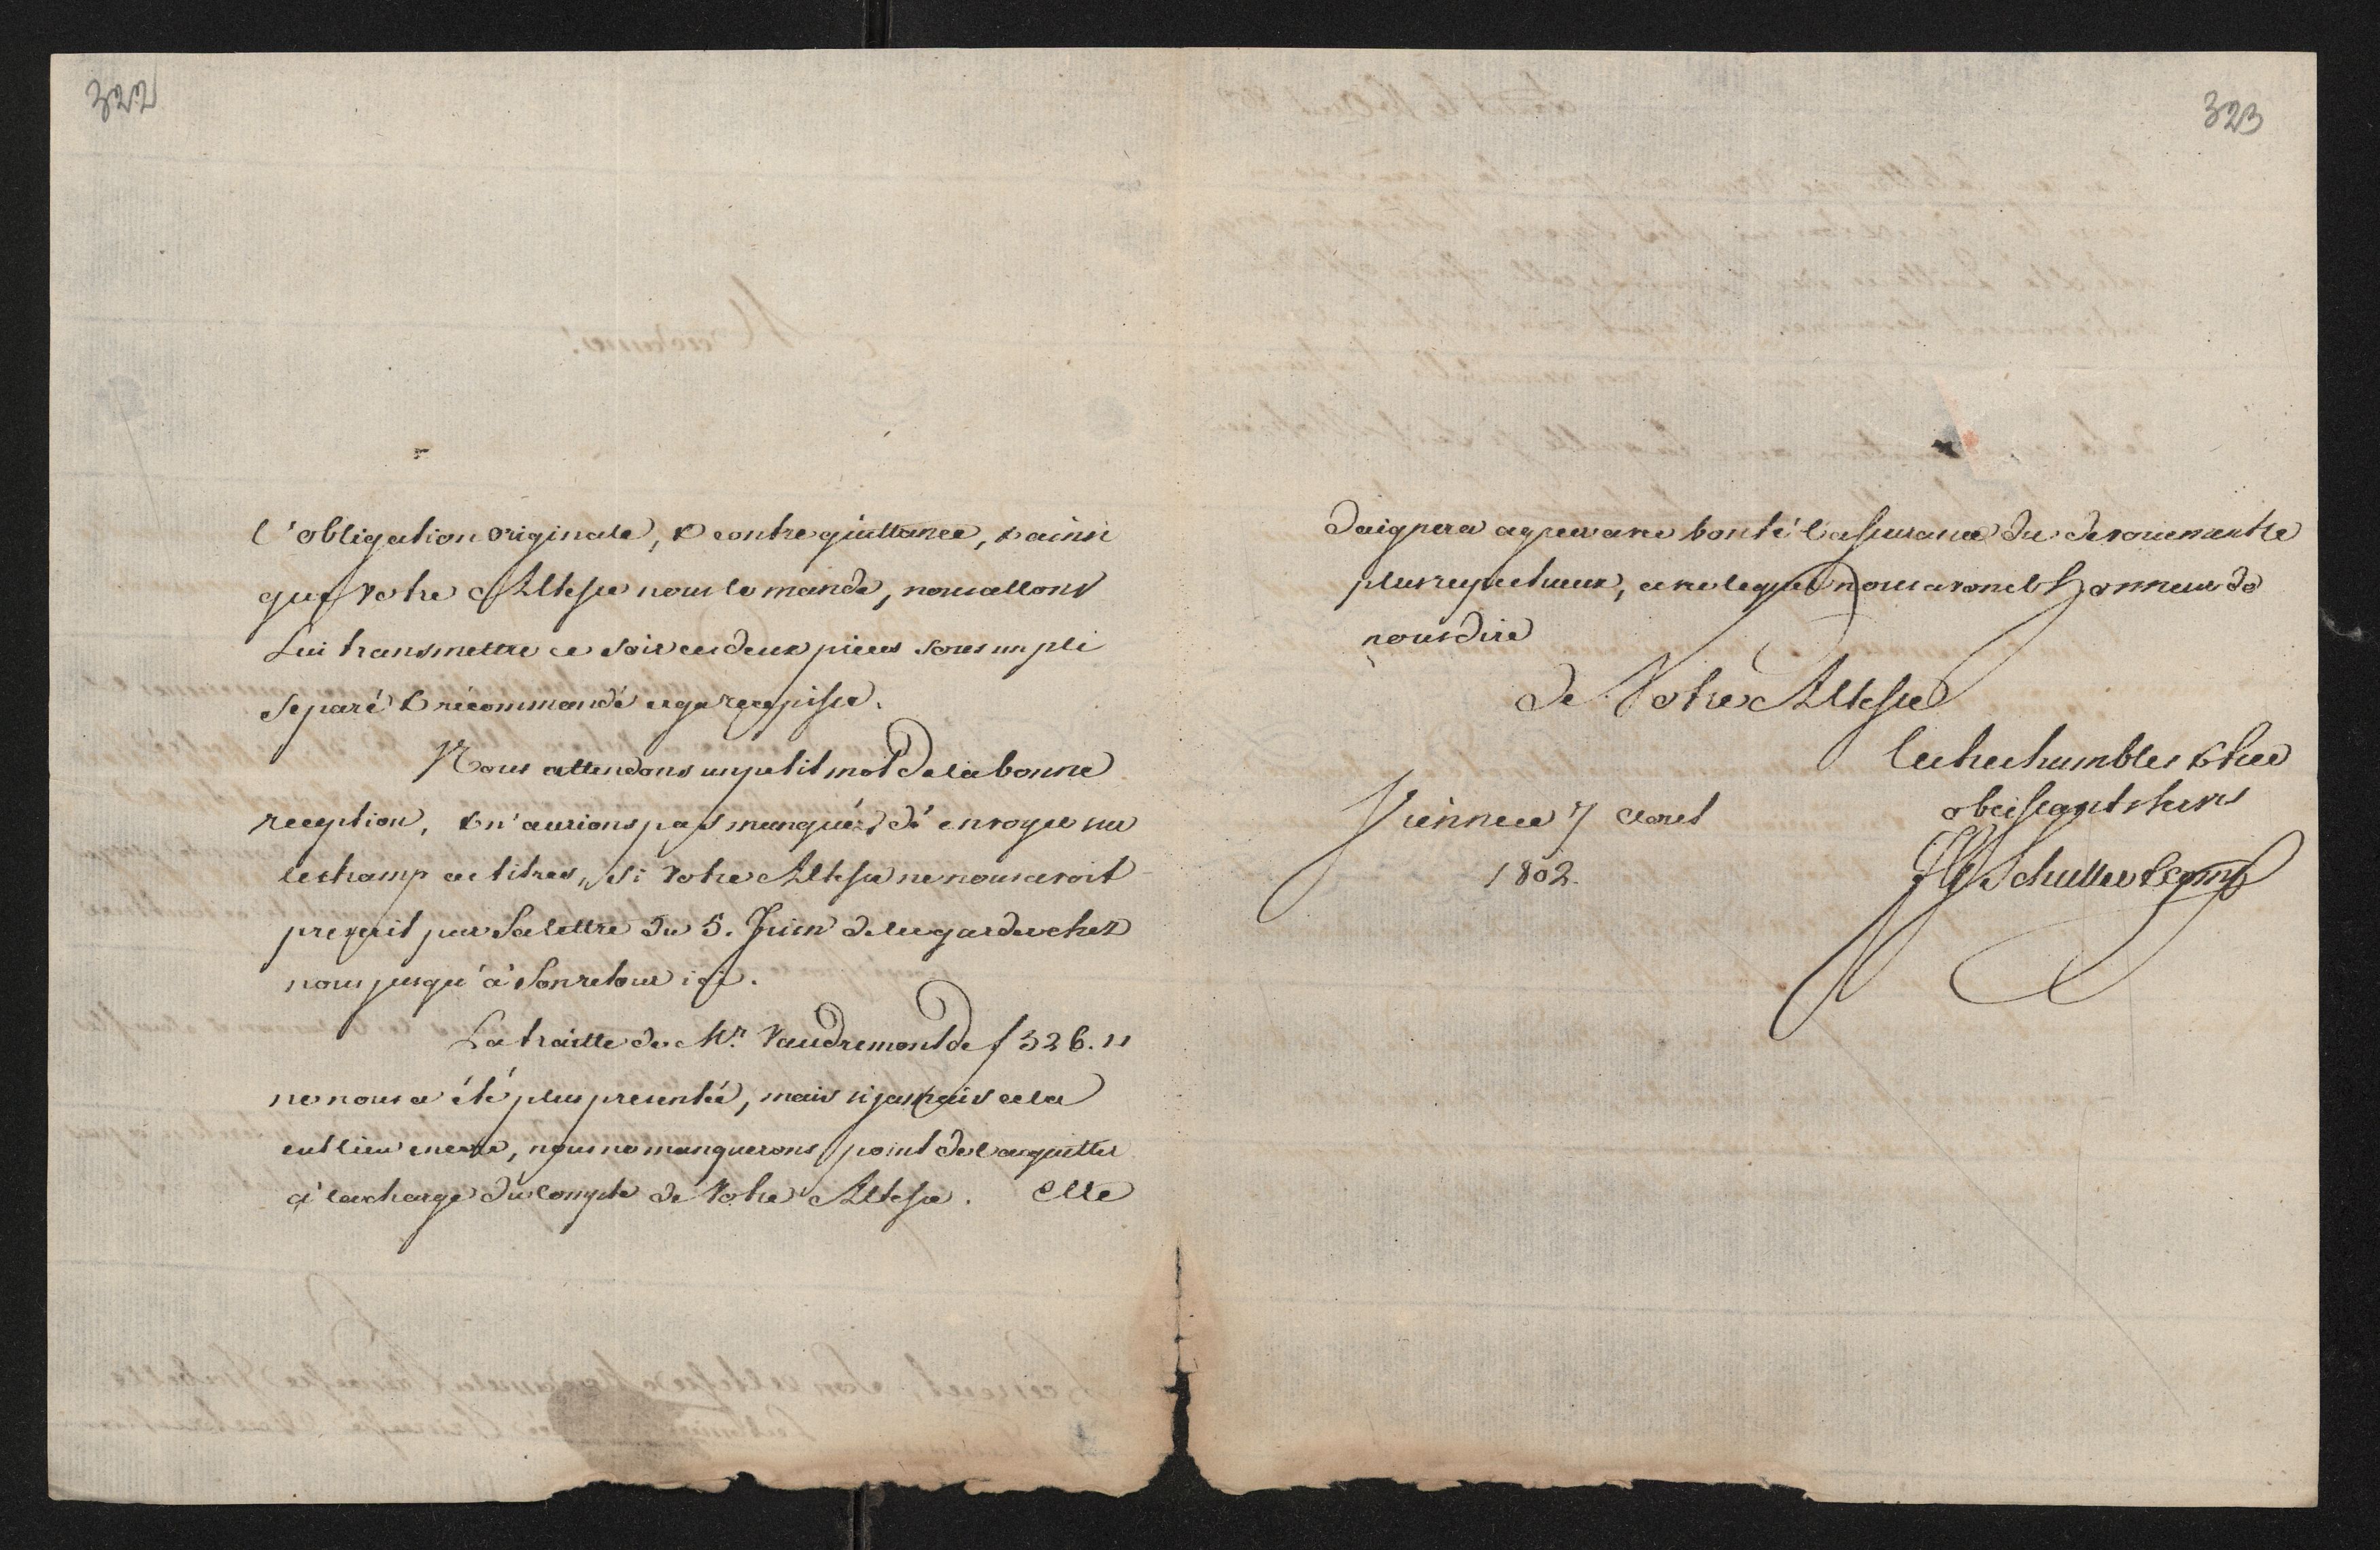 322
l'obligation originale, & contre quittance, & ainsi
que Votre Altesse nous le mande, nous allons
Lui transmettre ce soir ces deux pieces sous un pli
separé & récommandé
Nous attendons un petit mot de la bonne
reception, & n'aurions pas manqués d'envoyer sur
le champ ces titres, si Votre Altesse ne nous avoit
prescrit par Sa lettre du 5. Juin de les garder chez
nous jusqu'à Son retour ici.
La traitte de Mr. Vaudremont de f 326. "
ne nous a été plus presentée, mais si jamais cela
eut lieu encore, nous ne manquerons point de l'acquitter
à la charge du Compte de Votre Altesse. Elle
323
daignera agreer avec bonté l'assurance du devouement le
plus respectueux, avec lequel nous avons l'honneur de
nous dire
de Votre Altesse
Les tres humbles & tres
obeissants servs
Vienne ce 7 Aout
1802.
Schuller & Comp